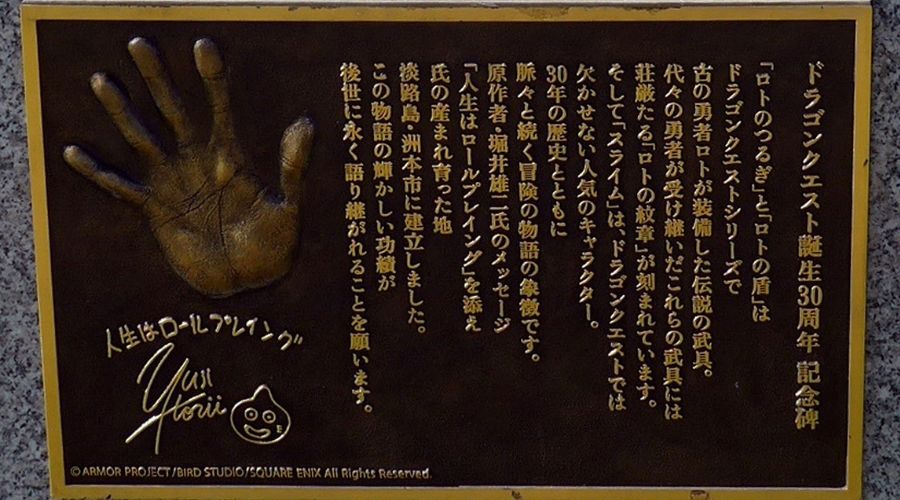 ドラゴンクエスト誕生30周年 記念碑
「ロトのつるぎ」と「ロトの盾」は
ドラゴンクエストシリーズで
古の勇者ロトが装備した伝説の武具。
代々の勇者が受け継いだこれらの武具には
荘厳たる「ロトの紋章」が刻まれています。
そして「スライム」は、ドラゴンクエストでは
欠かせない人気のキャラクター。
30年の歴史とともに
脈々と続く冒険の物語の象徴です。
原作者・堀井雄二氏のメッセージ
「人生はロールプレイング」を添え
氏の産まれ育った地
淡路島・洲本市に建立しました。
この物語の輝かしい功績が
後世に永く語り継がれることを願います。
人生はロールプレイング
Yuji
Horii
© ARMOR PROJECT/BIRD STUDIO/SQUARE ENIX All Rights Reserved.